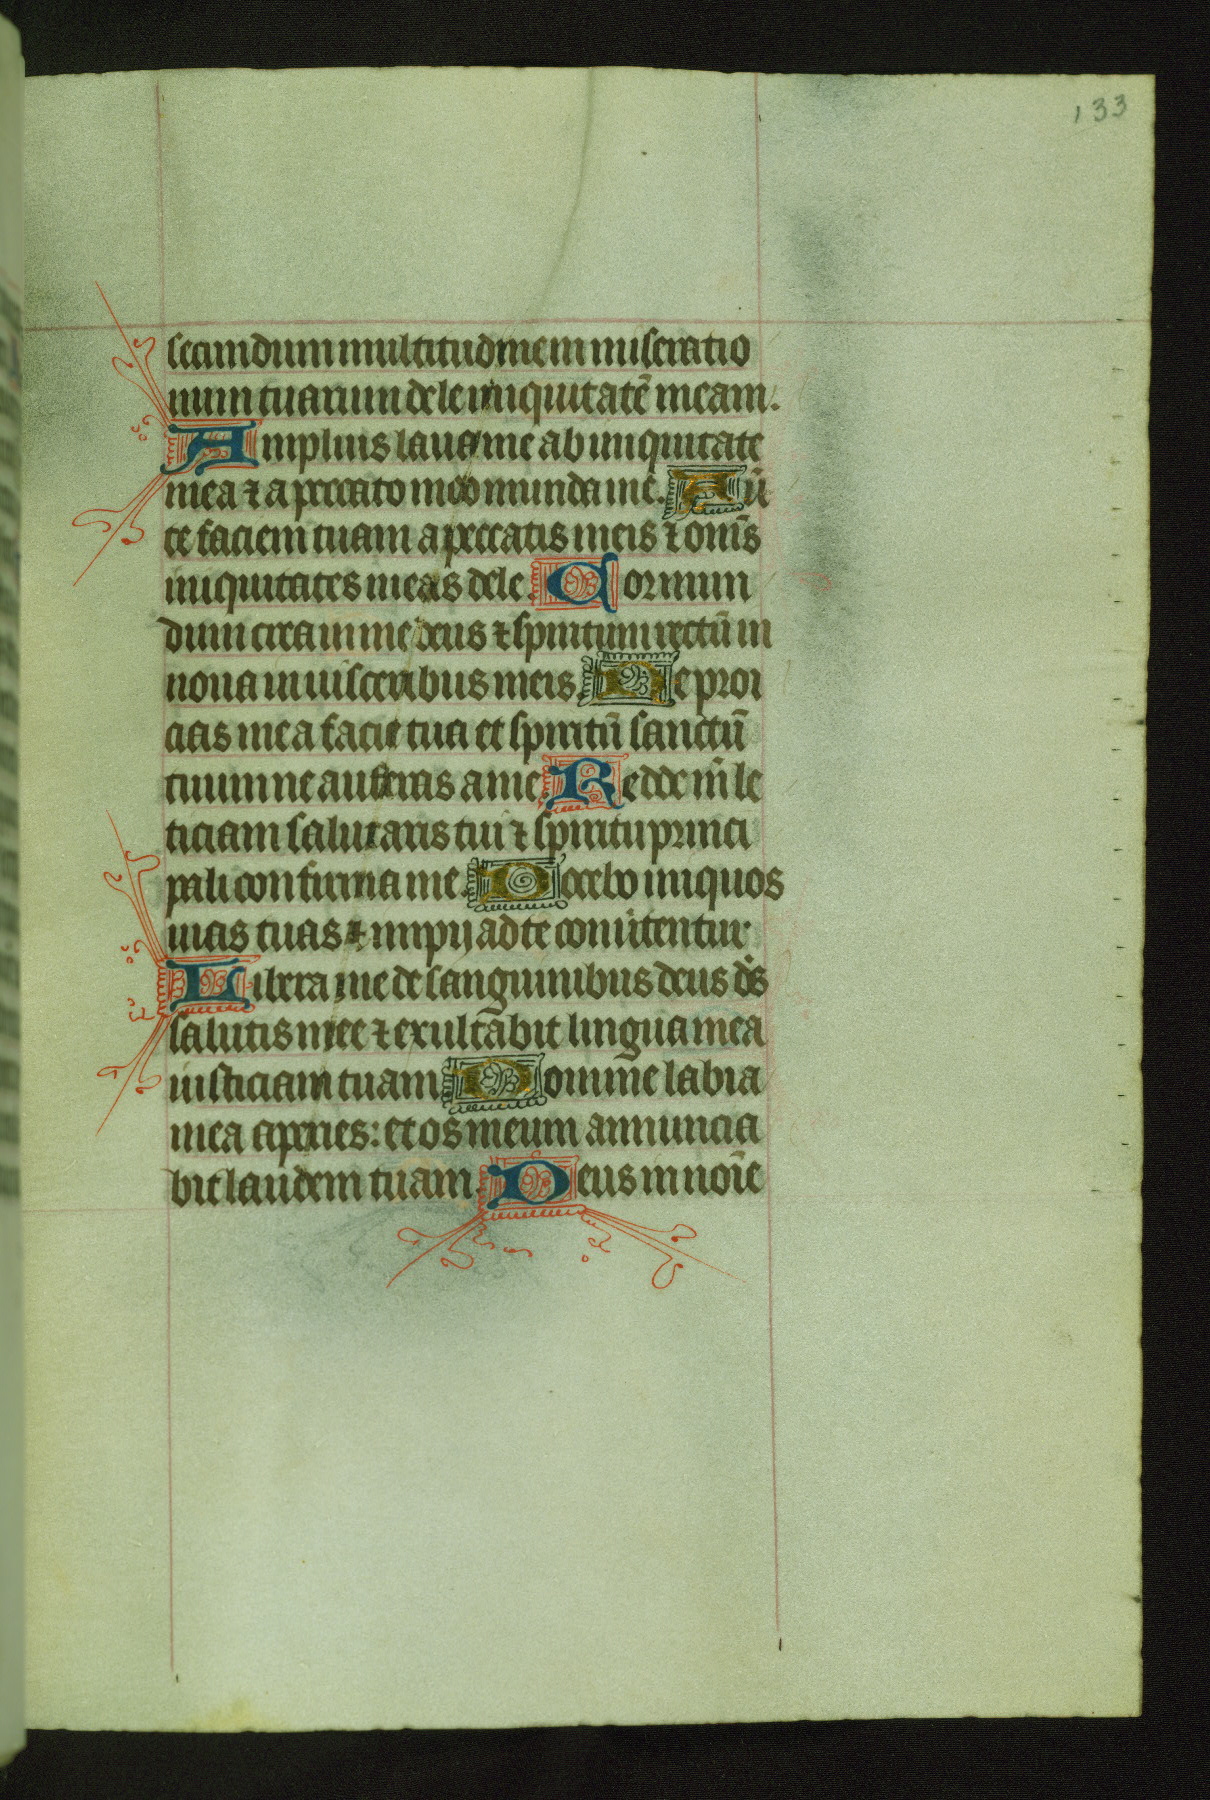 133
secundum multitudinem miseratio
num tuarum dele iniquitatē meam.
Amplius laua me ab iniquitate
mea ⁊ a peccato meo munda me. Au̅
te faciem tuam a peccatis meis ⁊ om̅s
iniquitates meas dele. Cor mun
dum crea in me deus ⁊ spiritum rectū in
noua in uisceribus meis. Ne proi
cias me a facie tua et spiritū sanctū
tuum ne auferas a me. Redde m̅ le
ticiam salutaris tui ⁊ spiritu princi
pali confirma me. Docebo iniquos
uias tuas ⁊ impij ad te conūtentur
Libera me de sanguinibus deus ds̅
salutis mee ⁊ exultabit lingua mea
iusticiam tuam Domine labia
mea aperies: et os meum annuncia
bit laudem tuam. Deus in noīe